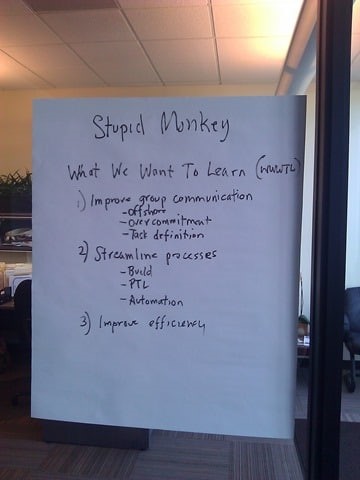 Stupid Monkey
What We Want To Learn (WWWTL)
1) Improve group communication
- Offshore
- Overcommitment
- Task definition
2) Streamline processes
- Build
- PTL
- Automation
3) Improve efficiency